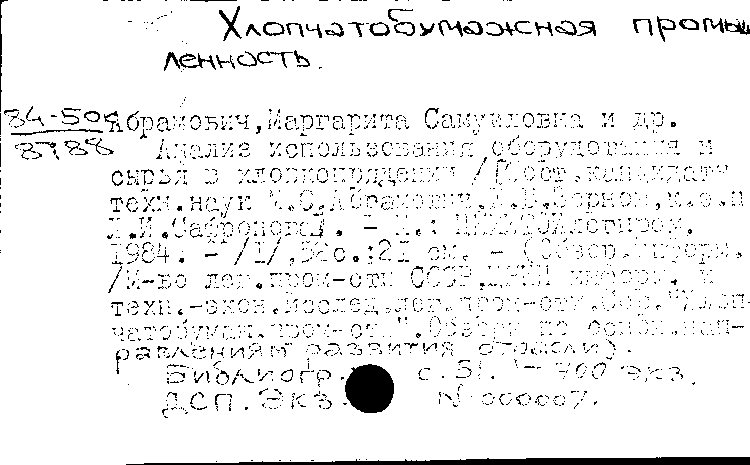 Хлопчатобумажная промыш
ленность.
84-50
8788
Абрамович, Маргарита Самуиловна и др.
Анализ использования оборудования и
сырья в хлопкопрядении / [Сост. кандидаты
техн. наук М.С.Абрамович,
- М.: ЦНИИТЭИлегпром,
1984. - /1/, 52с.; 21 см. - (Обзор. информ.
/М-во лег. пром-сти СССР, ЦНИИ информ. и
техн.-экон. исслед. лег. пром-сти. Сер. "Хлоп-
чатобумаж. пром-сть". Обзоры по основ. нап-
равлениям развития отрасли).
Библиогр. с. 51. - 700 экз.
ДСП. Экз. N 000007.